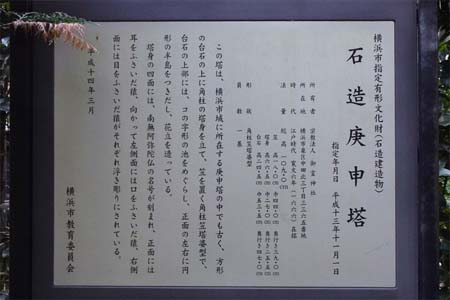 横浜市指定有形文化財(石造建造物)
石造庚申塔
指定年月日 平成十三年十一月一日
所有者 宗教法人 御霊神社
所在地 横浜市泉区中田北三丁目
時代 江戸時代 寛文六年(一六六六)在銘
法量 総高 一〇九・〇cm
笠
塔身
台石
形状 角柱笠塔婆型
員数 一基
この塔は、横浜市域に所在する庚申塔の中でも古く、方形
の台石の上に角柱の塔身を立て、笠を置く角柱笠塔婆型で、
台石の上部には、コの字形の池をめぐらし、正面の左右に円
形の半島をつきだし、花立を造っている。
塔身の四面には、南無阿弥陀仏の名号が刻まれ、正面には
耳をふさいだ猿、向かって左側面には口をふさいだ猿、右側
面には目をふさいだ猿がそれぞれ浮き彫りにされている。
平成十四年三月
横浜市教育委員会